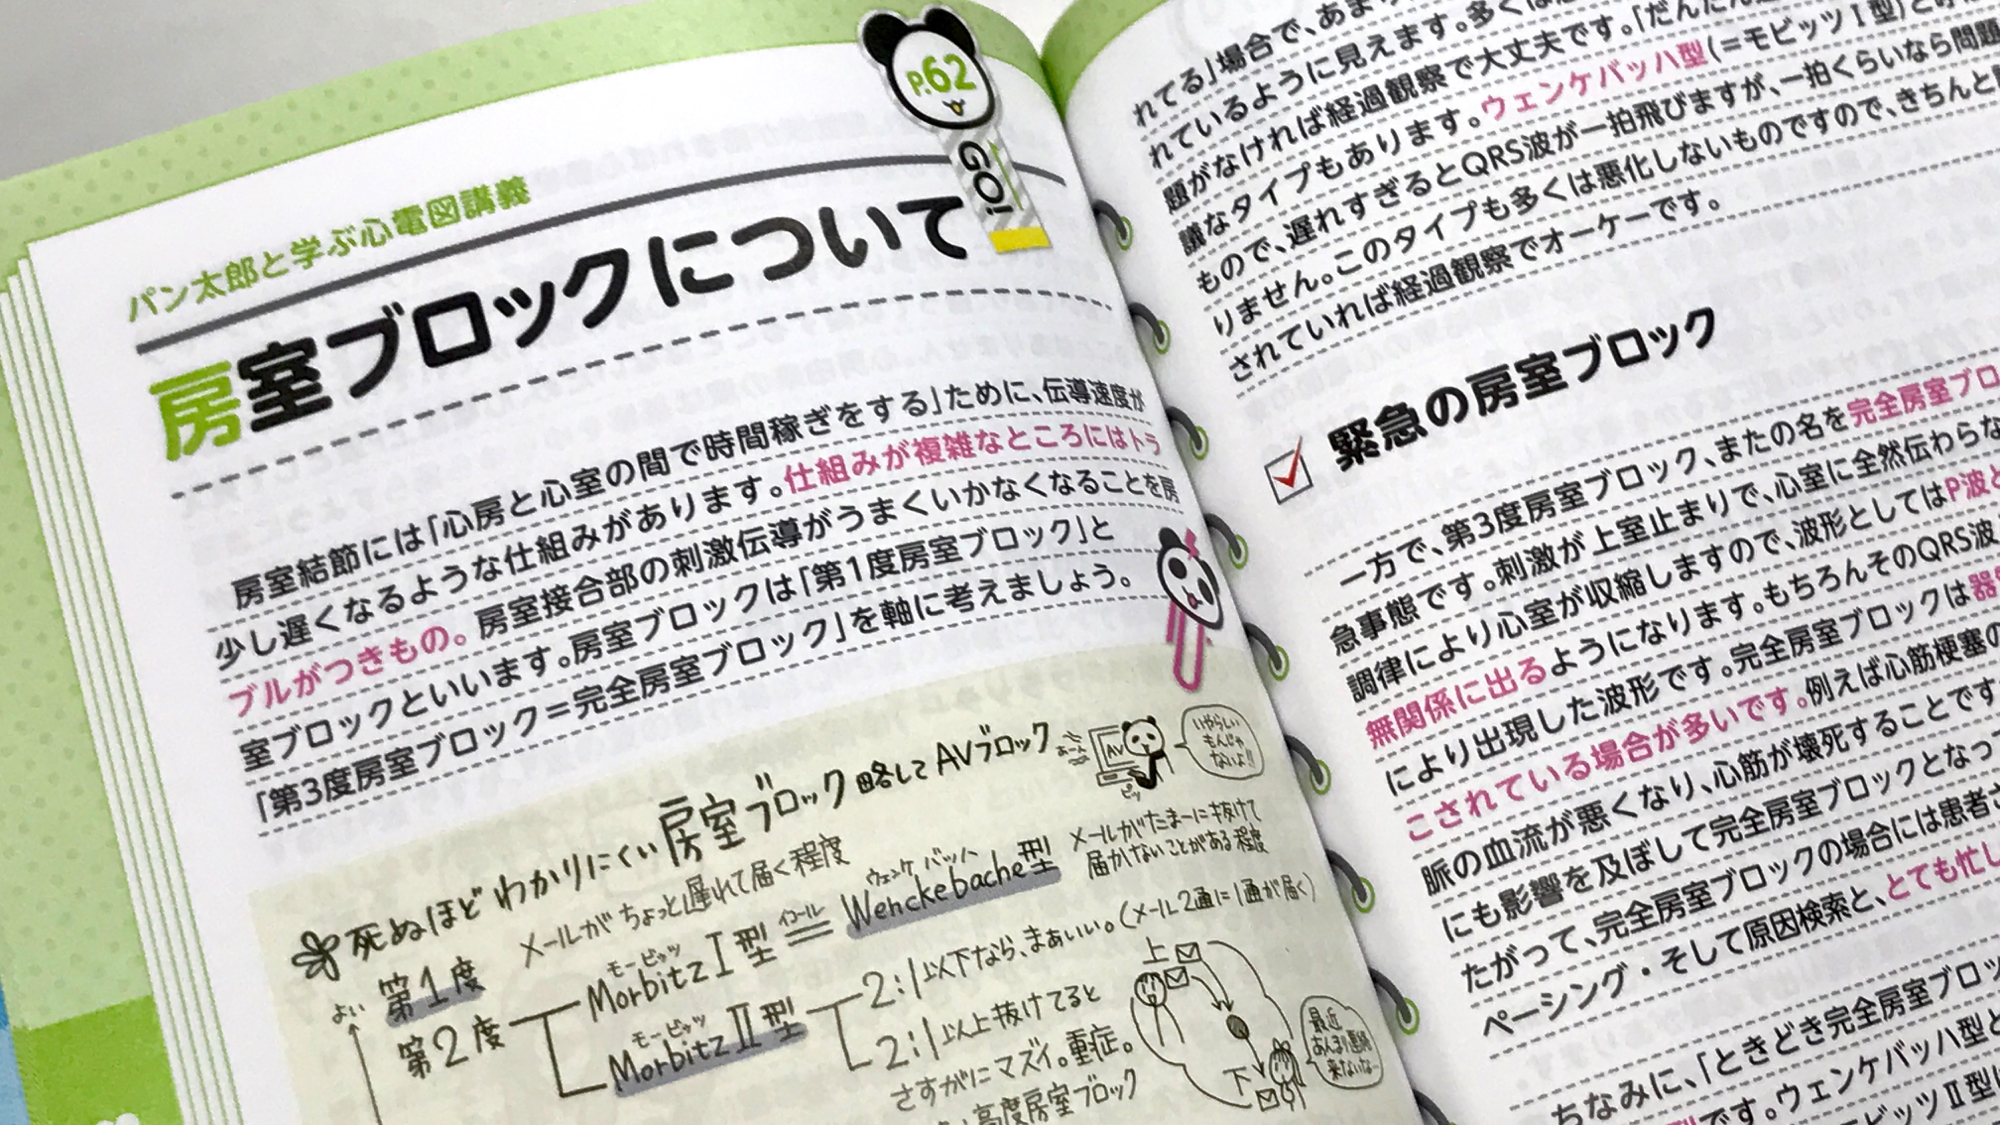 P.62
GO!
パン太郎と学ぶ心電図講義
房室ブロックについて
房室結節には「心房と心室の間で時間稼ぎをする」ために、伝導速度が
少し遅くなるような仕組みがあります。仕組みが複雑なところにはトラ
ブルがつきもの。房室接合部の刺激伝導がうまくいかなくなることを房
室ブロックといいます。房室ブロックは「第1度房室ブロック」と
「第3度房室ブロック＝完全房室ブロック」を軸に考えましょう。
死ぬほどわかりにくい房室ブロック略してAVブロック
AV
ピッ
いやらしい
もんじゃ
ないよ!!
よい
第1度
メールがちょっと遅れて届く程度
第2度
モービッツ
MorbitzⅠ型
イコール
＝
ウェンケバッハ
Wenckebache型
メールがたまーに抜けて
届かないことがある程度
モービッツ
MorbitzⅡ型
2:1以下なら、まぁいい。(メール2通に1通が届く)
2:1以上抜けてると
さすがにマズイ。重症。
高度房室ブロック
上
下
最近
あんまり連絡
来ないな〜
れてる」場合で、あまり
れているように見えます。多くは
題がなければ経過観察で大丈夫です。「だんだん
議なタイプもあります。ウェンケバッハ型(＝モビッツⅠ型)と呼
もので、遅れすぎるとQRS波が一拍飛びますが、一拍くらいなら問題
りません。このタイプも多くは悪化しないものですので、きちんと
されていれば経過観察でオーケーです。
緊急の房室ブロック
一方で、第3度房室ブロック、またの名を完全房室ブロ
急事態です。刺激が上室止まりで、心室に全然伝わらな
調律により心室が収縮しますので、波形としてはP波と
無関係に出るようになります。もちろんそのQRS波
により出現した波形です。完全房室ブロックは器
こされている場合が多いです。例えば心筋梗塞の
脈の血流が悪くなり、心筋が壊死することです
にも影響を及ぼして完全房室ブロックとなっ
たがって、完全房室ブロックの場合には患者さ
ペーシング・そして原因検索と、とても忙し
ちなみに、「ときどき完全房室ブロッ
型です。ウェンケバッハ型と
モビッツⅡ型は